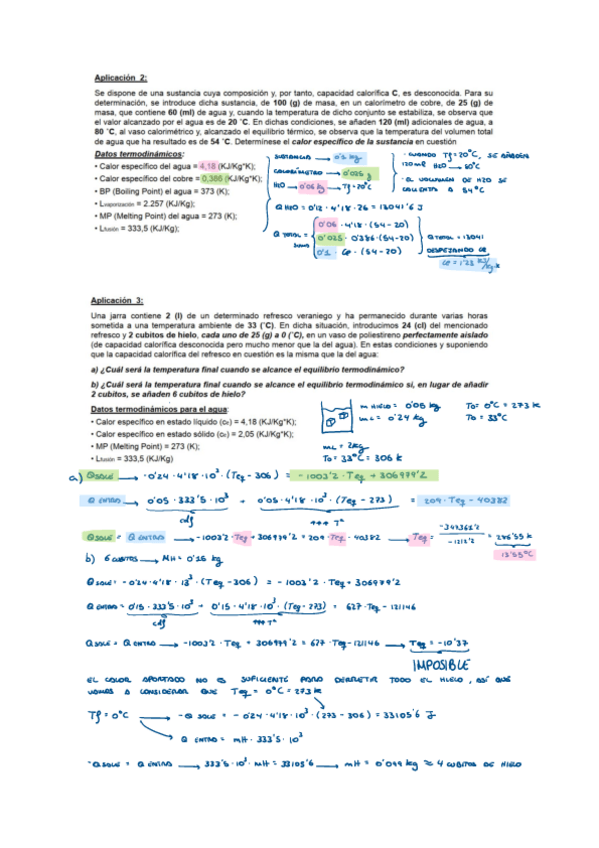 Aplicación 2:
Se dispone de una sustancia cuya composición y, por tanto, capacidad calorífica C, es desconocida. Para su
determinación, se introduce dicha sustancia, de 100 (g) de masa, en un calorímetro de cobre, de 25 (g) de
masa, que contiene 60 (ml) de agua y, cuando la temperatura de dicho conjunto se estabiliza, se observa que
el valor alcanzado por el agua es de 20 ˚C. En dichas condiciones, se añaden 120 (ml) adicionales de agua, a
80 ˚C, al vaso calorimétrico y, alcanzado el equilibrio térmico, se observa que la temperatura del volumen total
de agua que ha resultado es de 54 ˚C. Determínese el calor específico de la sustancia en cuestión
Datos termodinámicos:
• Calor específico del agua = 4,18 (KJ/Kg*K);
• Calor específico del cobre = 0,386 (KJ/Kg*K);
• BP (Boiling Point) el agua = 373 (K);
• Lvaporización = 2.257 (KJ/Kg);
• MP (Melting Point) del agua = 273 (K);
• Lfusión = 333,5 (KJ/Kg);
SUSTANCIA → 0'1 kg
CALORÍMETRO → 0'025 g
H2O → 0'06 kg → Tf = 20°C
· CUANDO Tf = 20°C, SE AÑADEN
120 ml H2O → 80°C
· EL VOLUMEN DE H2O SE
CALIENTA A 54°C
Q H2O = 0'12 · 4'18 · 26 = 13041'6 J
Q TOTAL =
0'06 · 4'18 · (54-20)
0'025 · 0'386 · (54-20)
0'1 · Ce · (54-20)
Q TOTAL = 13041
DESPEJANDO Ce
Ce = 1'23 KJ/kg·k
Aplicación 3:
Una jarra contiene 2 (l) de un determinado refresco veraniego y ha permanecido durante varias horas
sometida a una temperatura ambiente de 33 (˚C). En dicha situación, introducimos 24 (cl) del mencionado
refresco y 2 cubitos de hielo, cada uno de 25 (g) a 0 (˚C), en un vaso de poliestireno perfectamente aislado
(de capacidad calorífica desconocida pero mucho menor que la del agua). En estas condiciones y suponiendo
que la capacidad calorífica del refresco en cuestión es la misma que la del agua:
a) ¿Cuál será la temperatura final cuando se alcance el equilibrio termodinámico?
b) ¿Cuál será la temperatura final cuando se alcance el equilibrio termodinámico si, en lugar de añadir
2 cubitos, se añaden 6 cubitos de hielo?
Datos termodinámicos para el agua:
• Calor específico en estado líquido (ce) = 4,18 (KJ/Kg*K);
• Calor específico en estado sólido (ce) = 2,05 (KJ/Kg*K);
• MP (Melting Point) = 273 (K);
• Lfusión = 333,5 (KJ/Kg)
m HIELO = 0'05 kg   To = 0°C = 273 k
mL = 0'24 kg   To = 33°C
mL = 2kg
To = 33°C = 306 k
a) Q SALE → -0'24 · 4'18 · 10³ · (Teq - 306) = -1003'2 · Teq + 306979'2
Q ENTRA → 0'05 · 333'5 · 10³ + 0'05 · 4'18 · 10³ · (Teq - 273) = 209 · Teq - 40382
cdf   ↑↑↑ Tª
Q SALE = Q ENTRA → -1003'2 · Teq + 306979'2 = 209 · Teq - 40382 → Teq = -347361'2 / -1212'2 = 286'55 K
13'55°C
b) 6 CUBITOS → MH = 0'15 kg
Q SALE = -0'24 · 4'18 · 10³ · (Teq - 306) = -1003'2 · Teq + 306979'2
Q ENTRA = 0'15 · 333'5 · 10³ + 0'15 · 4'18 · 10³ · (Teq - 273) = 627 · Teq - 121146
cdf   ↑↑↑ Tª
Q SALE = Q ENTRA → -1003'2 · Teq + 306979'2 = 627 · Teq - 121146 → Teq = -10'37
IMPOSIBLE
EL CALOR APORTADO NO ES SUFICIENTE PARA DERRETIR TODO EL HIELO, ASÍ QUE
VAMOS A CONSIDERAR QUE Teq = 0°C = 273 k
Tf = 0°C → -Q SALE = -0'24 · 4'18 · 10³ · (273 - 306) = 33105'6 J
Q ENTRA = mH · 333'5 · 10³
-Q SALE = Q ENTRA → 333'5 · 10³ · mH = 33105'6 → mH = 0'099 kg ≈ 4 CUBITOS DE HIELO